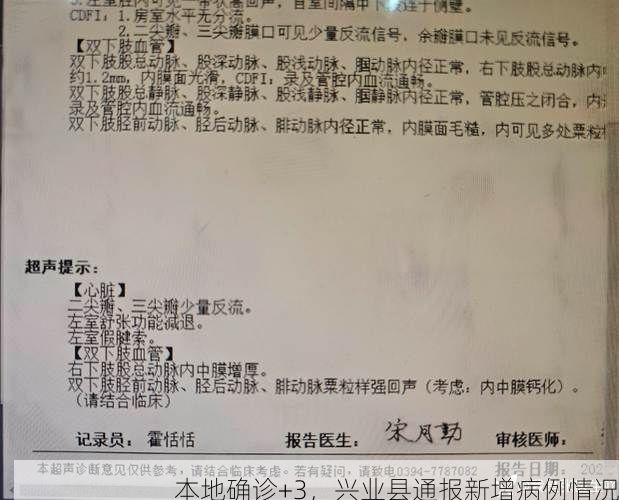 3.左室腔内可见一带状基回声，自室间隔中下段连于侧壁。
CDFI：1.房室水平无分流。
2.二尖瓣、三尖瓣膜口可见少量反流信号，余瓣膜口未见反流信号。
【双下肢血管】
双下肢股总动脉、股深动脉、股浅动脉、腘动脉内径正常，右下肢股总动脉内中
约1.2mm，内膜面光滑，CDFI：录及管腔内血流通畅。
双下肢股总静脉、股深静脉、股浅静脉、腘静脉内径正常，管腔压之闭合，内
录及管腔内血流通畅。
双下肢胫前动脉、胫后动脉、腓动脉内径正常，内膜面毛糙，内可见多处粟粒样
超声提示：
【心脏】
二尖瓣、三尖瓣少量反流。
左室舒张功能减退。
左室假腱索。
【双下肢血管】
右下肢股总动脉内中膜增厚。
双下肢胫前动脉、胫后动脉、腓动脉粟粒样强回声（考虑：内中膜钙化）。
（请结合临床）
记录员： 霍恬恬 报告医生： 宋月勤 审核医师：
本超声诊断意见仅供参考，请结合临床考虑。若有疑问，请致电0394-7787082 报告日期： 202
本地确诊+3，兴业县通报新增病例情况